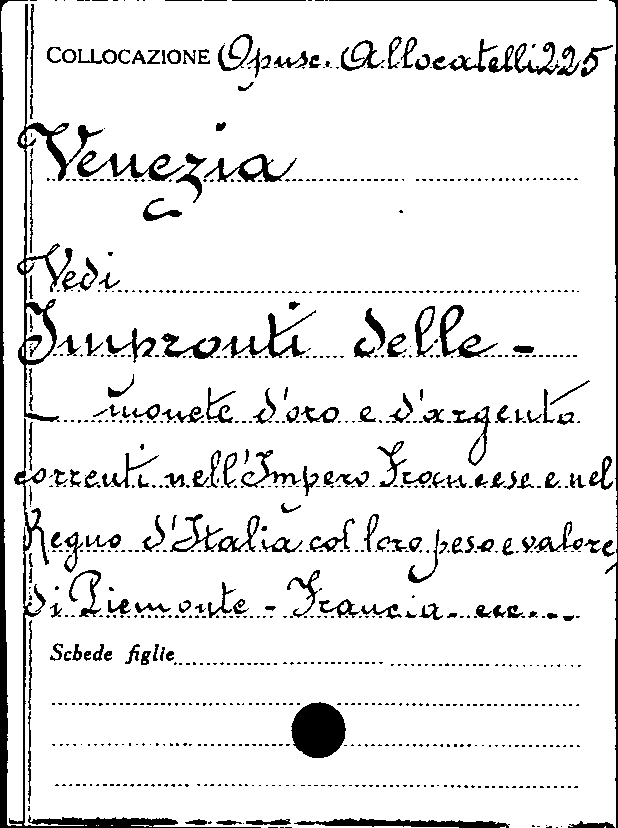 COLLOCAZIONE Opusc. Allocatelli 225
Venezia
Vedi
Impronti delle -
- monete d'oro e d'argento
correnti nell'Impero Francese e nel
Regno d'Italia col loro peso e valore,
di Piemonte - Francia - ecc...
Schede figlie